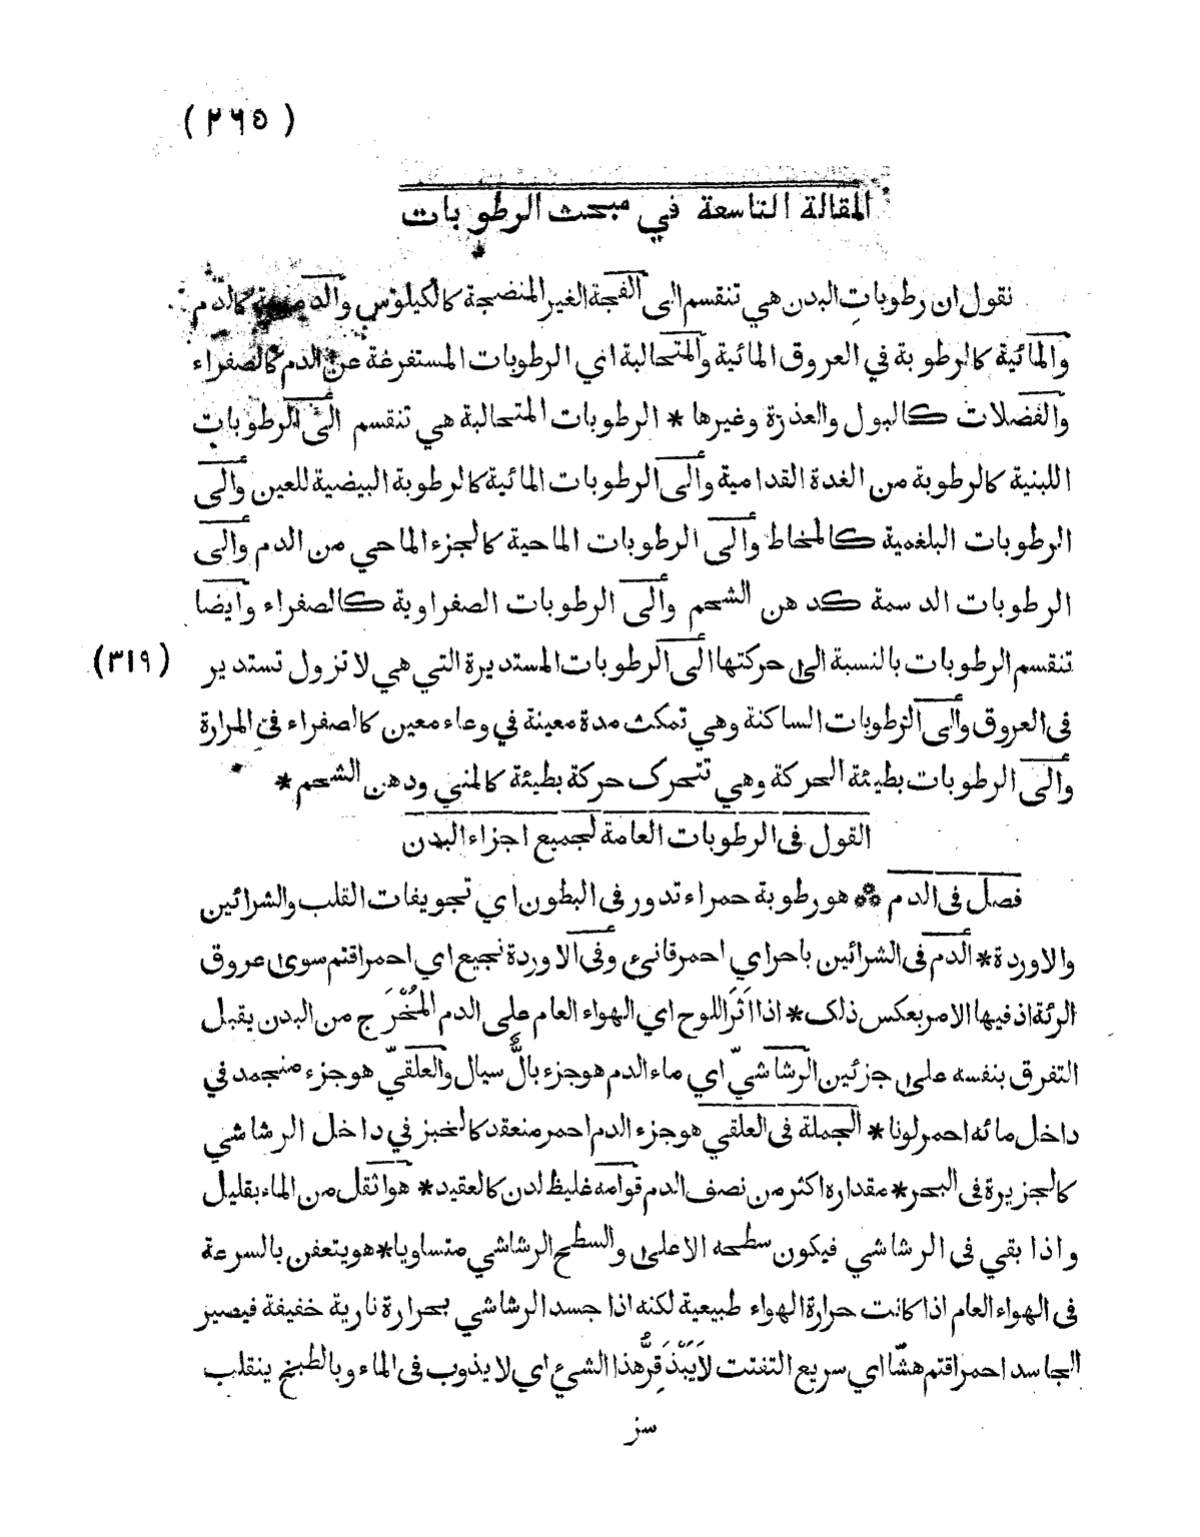 (٢٦٥)
المقالة التاسعة في مبحث الرطوبات
نقول ان رطوباتِ البدن هي تنقسم الى الفجة الغير المنضجة كالكيلوس كالدم
والمائية كالرطوبة في العروق المائية والمتحالبة اني الرطوبات المستفرغة عن الدم كالصفراء
والفضلات كالبول والعذرة وغيرها * الرطوبات المتحالبة هي تنقسم الى الرطوبات
اللبنية كالرطوبة من الغدة القدامية والى الرطوبات المائية كالرطوبة البيضية للعين والى
الرطوبات البلغمية كالمخاط والى الرطوبات الماحية كالجزء الماحي من الدم والى
الرطوبات الدسمة كدهن الشحم والى الرطوبات الصفراوية كالصفراء وايضا
تنقسم الرطوبات بالنسبة الى حركتها الى الرطوبات المستديرة التي هي لا تزول تستدير (٣١٩)
فى العروق والى الرطوبات الساكنة وهي تمكث مدة معينة في وعاء معين كالصفراء فى المرارة
والى الرطوبات بطيئة الحركة وهي تتحرك حركة بطيئة كالمني ودهن الشحم *
القول فى الرطوبات العامة لجميع اجزاء البدن
فصل فى الدم * هو رطوبة حمراء تدور فى البطون اي تجويفات القلب والشرائين
والاوردة * الدم فى الشرائين باحر اي احمر قانئ وفى الاوردة نجيع اي احمر اقتم سوى عروق
الرئة اذ فيها الامر بعكس ذلك * اذا اَثَرَ اللوح اي الهواء العام على الدم المُخْرَج من البدن يقبل
التفرق بنفسه على جزئين الرشاشيّ اي ماء الدم هو جزء بالٌّ سيال والعلقيّ هو جزء منجمد في
داخل مائه احمر لونا * الجملة فى العلقي هو جزء الدم احمر منعقد كالخبز في داخل الرشاشي
كالجزيرة فى البحر * مقداره اكثر من نصف الدم قوامه غليظ لدن كالعقيد * هو اثقل من الماء بقليل
واذا بقي فى الرشاشي فيكون سطحه الاعلى والسطح الرشاشي متساويا * هو يتعفن بالسرعة
فى الهواء العام اذا كانت حرارة الهواء طبيعية لكنه اذا جسد الرشاشي بحرارة نارية خفيفة فيصير
الجاسد احمر اقتم هشّا اي سريع التفتت لاَيَبْذَقِرُّ هذا الشئ اي لا يذوب فى الماء وبالطبخ ينقلب